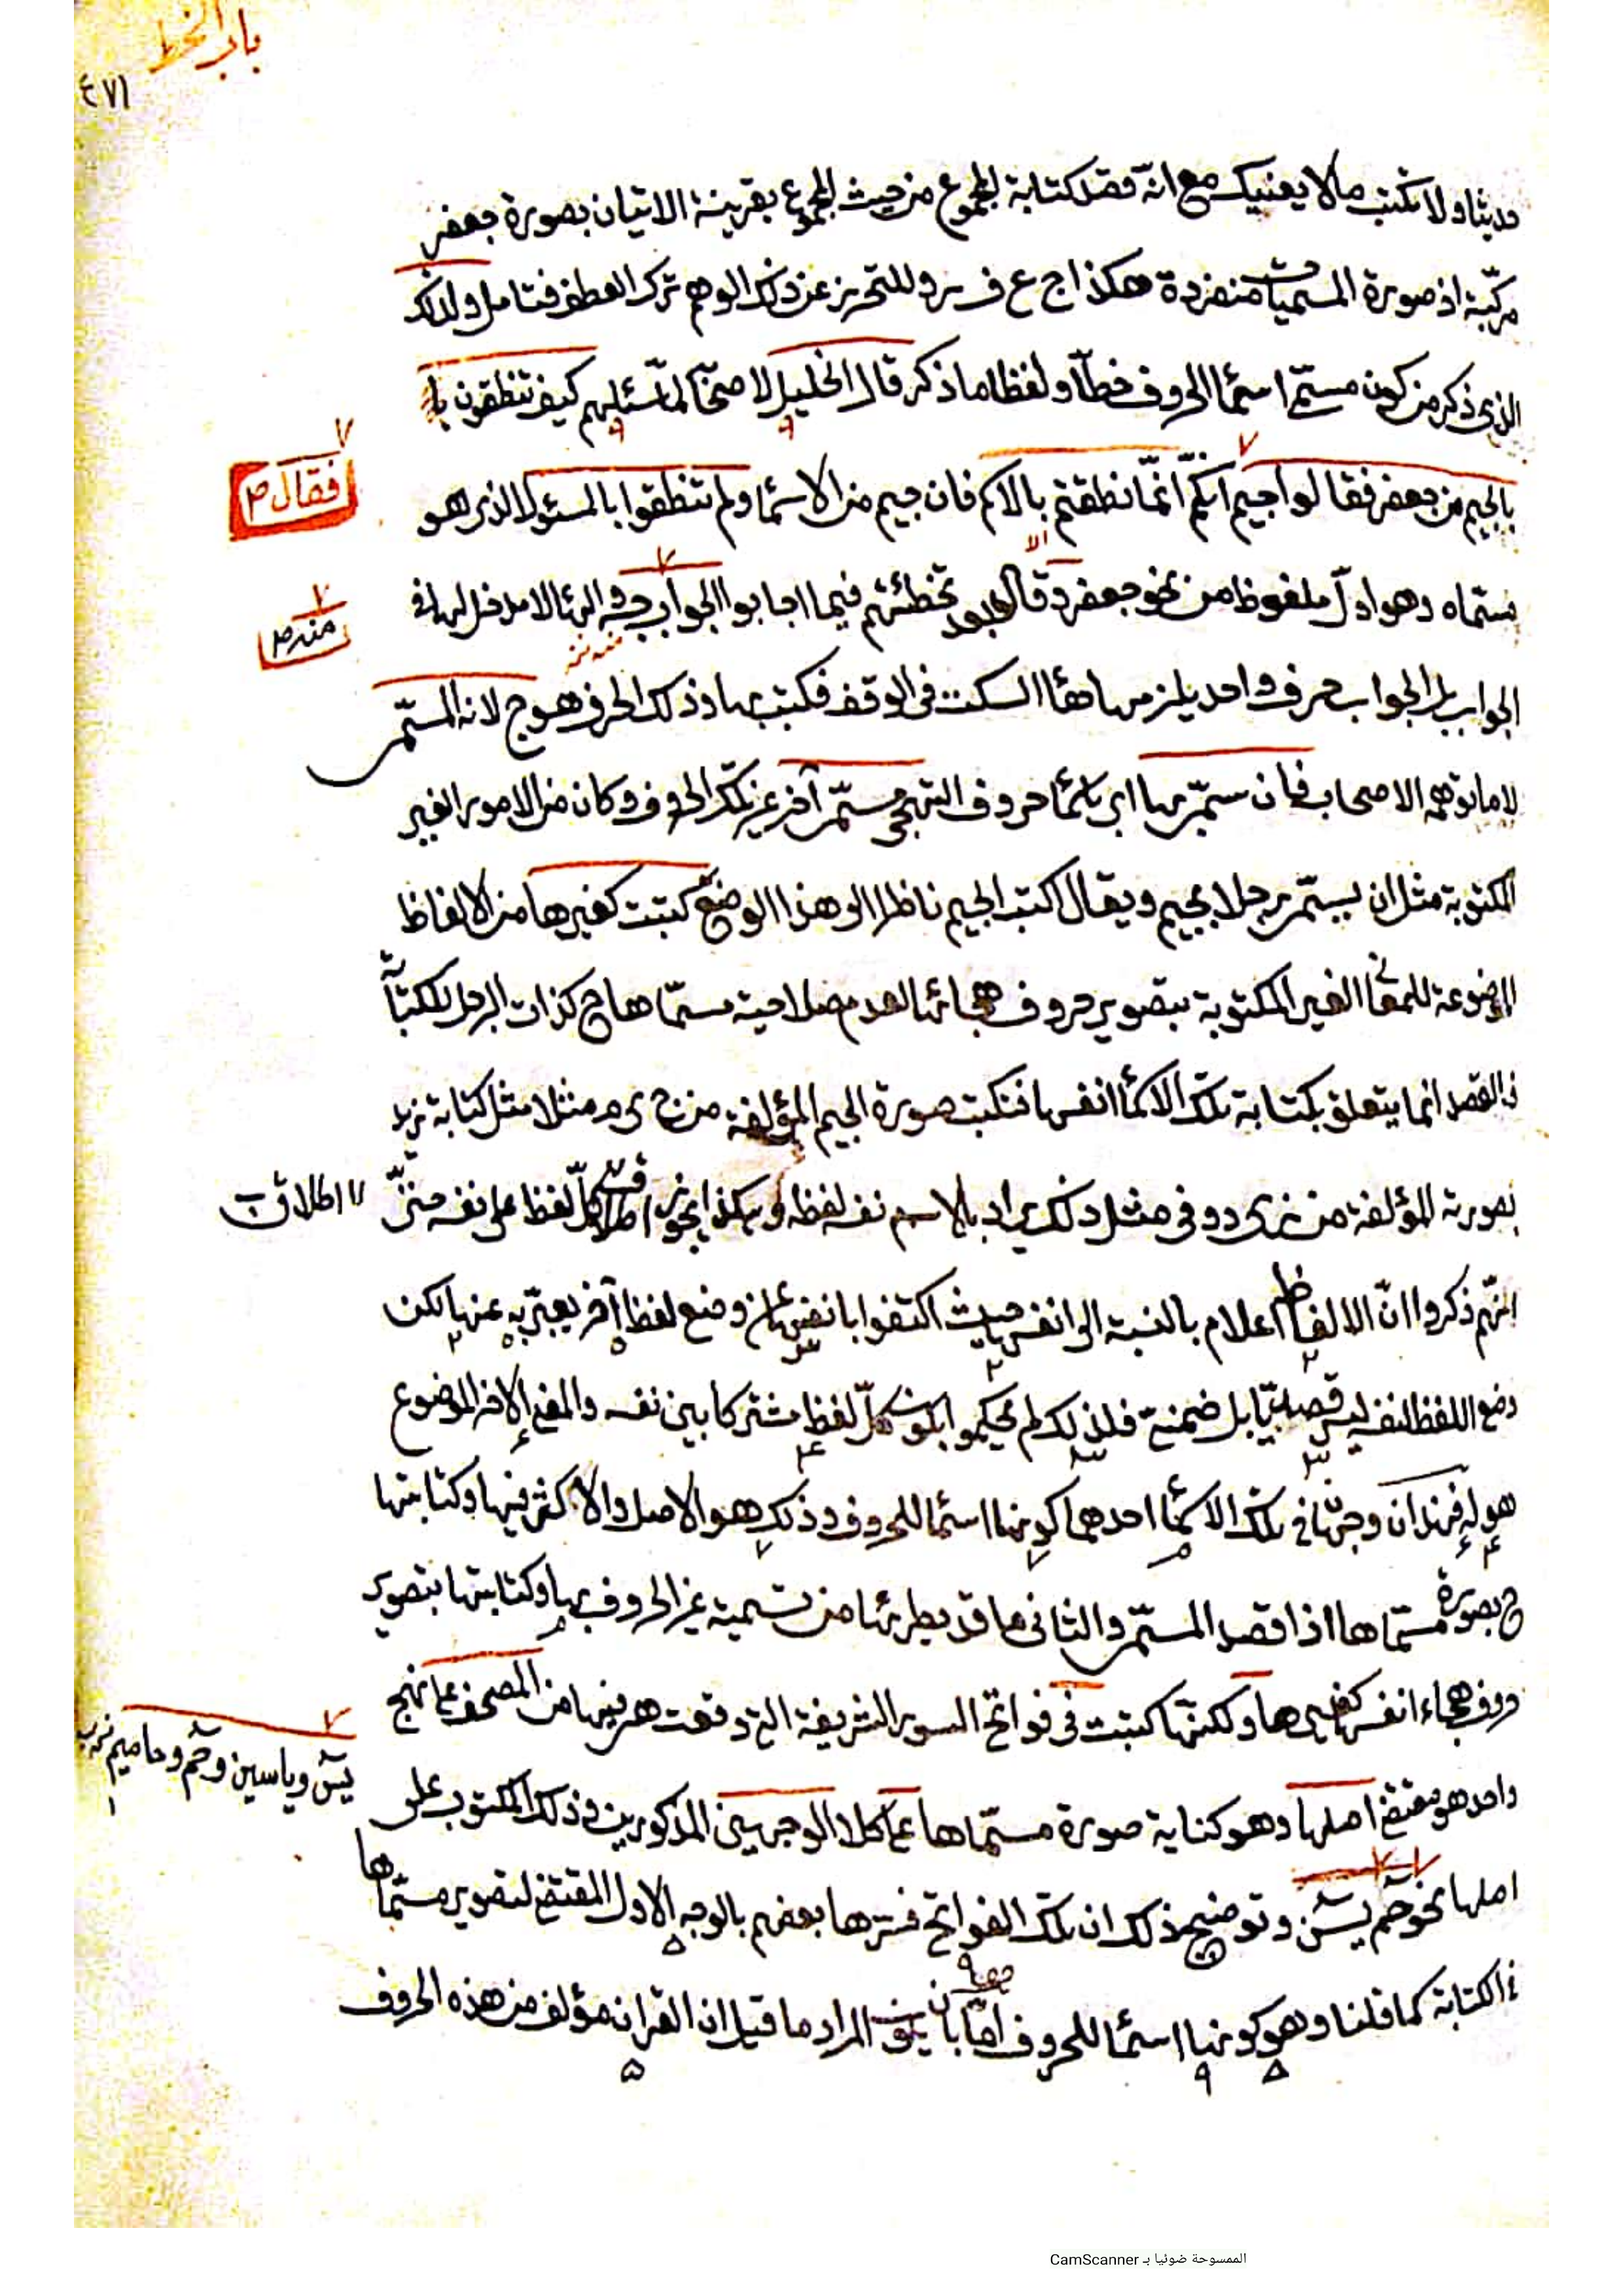 باب الخط
٤٧١
حديثا ولا تكتب ما لا يعنيك مع انه قصد كتابة المجموع من حيث المجموع بقرينة الاتيان بصورة جعفر
مركبة اذ صورة المسميات منفردة هكذا ج ع ف ر وللتحرز عن ذلك الوهم ترك العطف فتامل ولذلك
الذى ذكر من كون مسمى اسماء الحروف خطا ولفظا ما ذكر قال الخليل لاصحابه لما سئلهم كيف تنطقون
بالجيم من جعفر فقالوا جيم انكم انما نطقتم بالاسم فان جيم من الاسماء ولم تنطقوا بالمسئول الذى هو
فقال ص
مسماه وهو اول ملفوظ من نحو جعفر وقال بعد تخطئتهم فيما اجابوا الجواب جه الهاء لا مدخل لها فى
منه ص
الجواب بل الجواب حرف واحد يلزمها هاء السكت فى الوقف فكتب بها وذلك الحرف هو ج لانه المسمى
لا ما توهمه الاصحاب فان سمى بها اى باسماء حروف التهجى مسمى آخر غير تلك الحروف وكان من الامور الغير
المكتوبة مثل ان يسمى رجلا بجيم ويقال اكتب الجيم ناظرا الى هذا الوضع كتبت كغيرها من الالفاظ
الموضوعة للمعانى الغير المكتوبة بتصوير حروف هجائها لعدم صلاحية مسماها ح كذات الرجل للكتابة
فالقصد انما يتعلق بكتابة تلك الاسماء انفسها فتكتب صورة الجيم المؤلفة من ج ى م مثلا مثل كتابة زيد
بصورته المؤلفة من ز ى د وفى مثل ذلك يراد بالاسم نفس لفظه وهكذا يجوز اطلاق كل لفظ على نفسه حتى
اطلاق
انهم ذكروا ان الالفاظ اعلام بالنسبة الى انفسها حيث اكتفوا بانفسها عن وضع لفظ آخر يعبر به عنها لكن
وضع اللفظ لنفسه ليس قصديا بل ضمنى فلذلك لم يحكموا بكون كل لفظ مشتركا بين نفسه والمعنى الآخر الموضوع
هو له فهذان وجهان فى تلك الاسماء احدهما كونها اسماء للحروف وذلك هو الاصل والاكثر فيها وكتابتها
ح بصورة مسماها اذا قصد المسمى والثانى ما قد يطرئها من تسمية غير الحروف بها وكتابتها بتصوير
حروف هجاء انفسها كغيرها ولكنها كتبت فى فواتح السور الشريفة التى وقعت هى فيها من المصحف على نهج
يس وياسين وحم وحاميم
واحد هو مقتضى اصلها وهو كتابة صورة مسماها على كلا الوجهين المذكورين وذلك المكتوب على
اصلها نحو حم يس وتوضيح ذلك ان تلك الفواتح فسرها بعضهم بالوجه الاول المقتضى لتصوير مسماها
فى الكتابة كما قلنا وهو كونها اسماء للحروف اما بان يكون المراد ما قيل ان القران مؤلف من هذه الحروف
الممسوحة ضوئيا بـ CamScanner